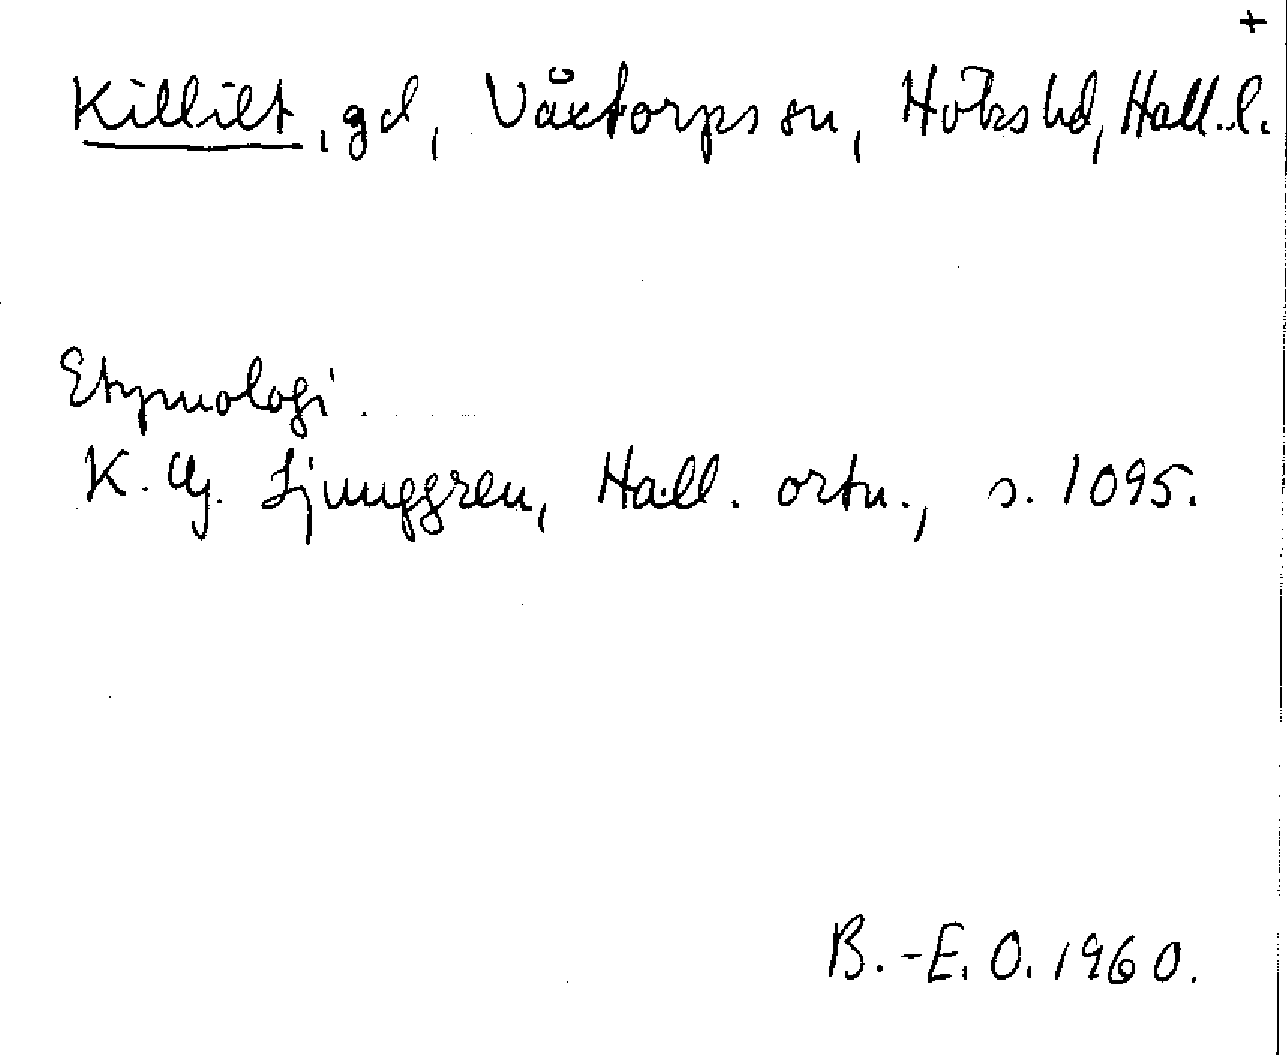 +
Killilt, gd, Våxtorps sn, Höks hd, Hall. l.
Etymologi.
K. G. Ljunggren, Hall. ortn., s. 1095.
B.-E. O. 1960.